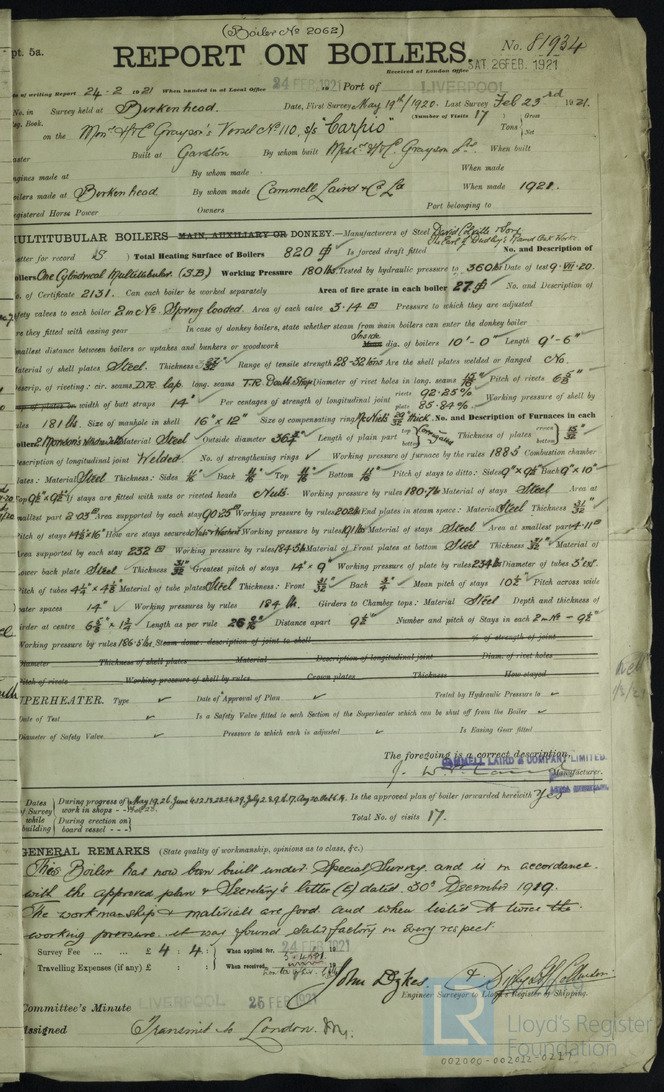 (Boiler No 2062)
pt. 5a.
REPORT ON BOILERS.
No. 81934
Received at London Office SAT 26 FEB. 1921
of writing Report 24-2-1921 When handed in at Local Office 24 FEB. 1921 19 Port of LIVERPOOL
No. in Survey held at Birkenhead. Date, First Survey May 19th/1920. Last Survey Feb 23rd 1921.
eg. Book. (Number of Visits 17)
on the Mess H&C Grayson's Vessel No 110, s/s "Carpio" Tons Gross Net
aster Built at Garston By whom built Messrs H&C. Grayson Ld. When built
ngines made at By whom made When made
oilers made at Birkenhead By whom made Cammell Laird & Co Ld When made 1921.
egistered Horse Power Owners Port belonging to
MULTITUBULAR BOILERS MAIN, AUXILIARY OR DONKEY.—Manufacturers of Steel David Colville & Sons
The Earl of Dudley's Round Oak Works
etter for record (S) Total Heating Surface of Boilers 820 Is forced draft fitted No. and Description of
oilers One Cylindrical Multitubular. (S.B.) Working Pressure 180 lbs Tested by hydraulic pressure to 360 lbs Date of test 9.VII.20.
o. of Certificate 2131. Can each boiler be worked separately Area of fire grate in each boiler 27 No. and Description of
afety valves to each boiler 2 in No. Spring loaded. Area of each valve 3.14 Pressure to which they are adjusted
re they fitted with easing gear In case of donkey boilers, state whether steam from main boilers can enter the donkey boiler
mallest distance between boilers or uptakes and bunkers or woodwork Inside dia. of boilers 10'-0" Length 9'-6"
aterial of shell plates Steel. Thickness 27/32 Range of tensile strength 28-32 tons Are the shell plates welded or flanged No.
escrip. of riveting: cir. seams D.R. lap. long. seams T.R. Double Strap Diameter of rivet holes in long. seams 15/16 Pitch of rivets 6 5/8"
width of butt straps 14" Per centages of strength of longitudinal joint rivets 92.25% plate 85.84%. Working pressure of shell by
ules 181 lbs. Size of manhole in shell 16" x 12" Size of compensating ring McNeil's 29/32 thick. No. and Description of Furnaces in each
oiler 2 Morison's Material Steel Outside diameter 36 Length of plain part top bottom Thickness of plates crown bottom 15/32
escription of longitudinal joint Welded No. of strengthening rings Working pressure of furnace by the rules 188 Combustion chamber
lates: Material Steel Thickness: Sides 11/16" Back 11/16" Top 11/16" Bottom 11/16" Pitch of stays to ditto: Sides 9"x9½ Back 9"x10"
Top 9½"x9½ If stays are fitted with nuts or riveted heads Nuts. Working pressure by rules 180.7 lb Material of stays Steel Area at
mallest part 2.03 Area supported by each stay 90.25 Working pressure by rules 202 lb End plates in steam space: Material Steel Thickness 31/32"
Pitch of stays 14½"x16" How are stays secured Nuts & Washers Working pressure by rules 191 lbs Material of stays Steel Area at smallest part 4.11
Area supported by each stay 232 Working pressure by rules 184.5 lbs Material of Front plates at bottom Steel Thickness 31/32" Material of
Lower back plate Steel Thickness 31/32 Greatest pitch of stays 14" x 9" Working pressure of plate by rules 234 lbs Diameter of tubes 3" ext.
Pitch of tubes 4¼" x 4⅛" Material of tube plates Steel Thickness: Front 31/32" Back 3/4" Mean pitch of stays 10½" Pitch across wide
ater spaces 14" Working pressures by rules 184 lbs. Girders to Chamber tops: Material Steel Depth and thickness of
irder at centre 6⅝" x 1¼" Length as per rule 26 Distance apart 9½" Number and pitch of Stays in each 2 in No - 9½"
Working pressure by rules 186.5 lbs. Steam dome: description of joint to shell % of strength of joint
Diameter Thickness of shell plates Material Description of longitudinal joint Diam. of rivet holes
Pitch of rivets Working pressure of shell by rules Crown plates Thickness How stayed
UPERHEATER. Type Date of Approval of Plan Tested by Hydraulic Pressure to
Date of Test Is a Safety Valve fitted to each Section of the Superheater which can be shut off from the Boiler
Diameter of Safety Valve Pressure to which each is adjusted Is Easing Gear fitted
The foregoing is a correct description,
CAMMELL LAIRD & COMPANY LIMITED.
Manufacturer.
Dates of Survey while building During progress of work in shops - - May 19, 26, June 4, 12, 18, 22, 24, 29, July 2, 8, 9, 6, 17, Aug 10, Oct 6, 14. Feb 23. Is the approved plan of boiler forwarded herewith Yes
During erection on board vessel - - - Total No. of visits 17.
GENERAL REMARKS (State quality of workmanship, opinions as to class, &c.)
This Boiler has now been built under Special Survey and is in accordance
with the approved plan & Secretary's letter (E) dated 30th December 1919.
The workmanship & materials are good and when tested to twice the
working pressure it was found satisfactory in every respect.
Survey Fee ... ... £ 4 : 4 : When applied for, 24 FEB. 1921 19
Travelling Expenses (if any) £ : : When received, 19
John Dykes &
Engineer Surveyor to Lloyd's Register of Shipping.
Committee's Minute LIVERPOOL 25 FEB 1921
Assigned Transmit to London.
LR Lloyd's Register
Foundation
002000-002012-0217